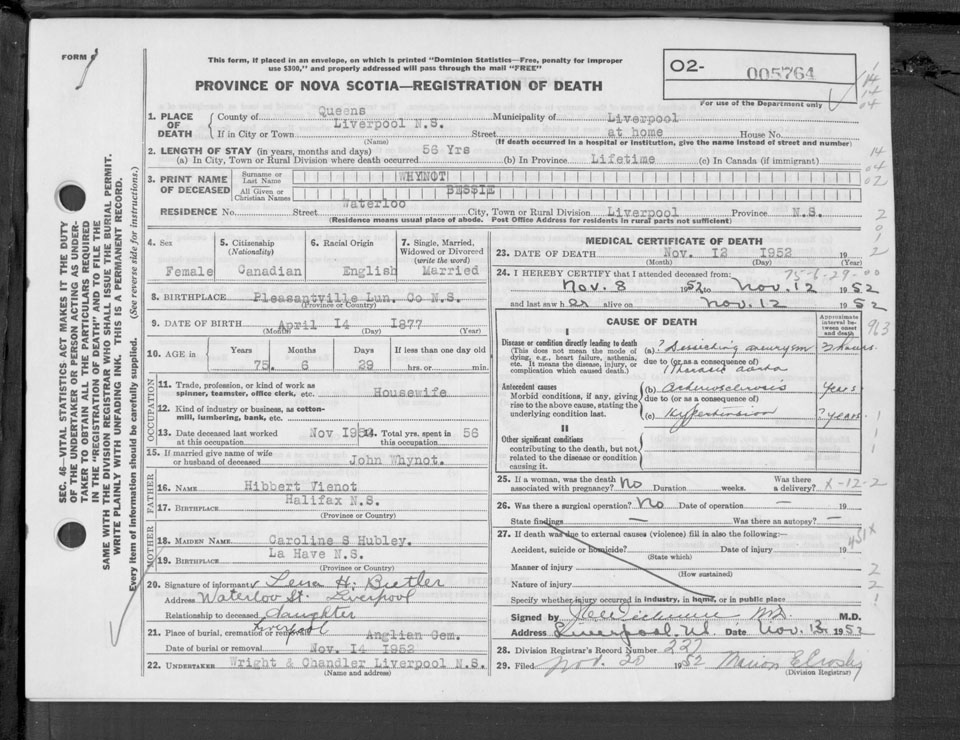 FORM
This form, if placed in an envelope, on which is printed "Dominion Statistics—Free, penalty for improper
use $300," and properly addressed will pass through the mail "FREE"
PROVINCE OF NOVA SCOTIA—REGISTRATION OF DEATH
O2- 005764
For use of the Department only
SEC. 46—VITAL STATISTICS ACT MAKES IT THE DUTY
OF THE UNDERTAKER OR PERSON ACTING AS UNDER-
TAKER TO OBTAIN ALL THE PARTICULARS REQUIRED
IN THE "REGISTRATION OF DEATH" AND TO FILE THE
SAME WITH THE DIVISION REGISTRAR WHO SHALL ISSUE THE BURIAL PERMIT.
WRITE PLAINLY WITH UNFADING INK. THIS IS A PERMANENT RECORD.
Every item of information should be carefully supplied. (See reverse side for instructions.)
1. PLACE OF DEATH
County of Queens Municipality of Liverpool
If in City or Town Liverpool N.S. Street at home House No.
(Name) (If death occurred in a hospital or institution, give the name instead of street and number)
2. LENGTH OF STAY (in years, months and days)
(a) In City, Town or Rural Division where death occurred 56 Yrs (b) In Province Lifetime (c) In Canada (if immigrant)
3. PRINT NAME OF DECEASED
Surname or Last Name WHYNOT
All Given or Christian Names BESSIE
RESIDENCE No. Street Waterloo City, Town or Rural Division Liverpool Province N.S.
(Residence means usual place of abode. Post Office Address for residents in rural parts not sufficient)
4. Sex 5. Citizenship (Nationality) 6. Racial Origin 7. Single, Married, Widowed or Divorced (write the word)
Female Canadian English Married
8. BIRTHPLACE Pleasantville Lun. Co N.S.
(Province or Country)
9. DATE OF BIRTH April 14 1877
(Month) (Day) (Year)
10. AGE in Years Months Days If less than one day old
75 6 29 hrs. or min.
OCCUPATION
11. Trade, profession, or kind of work as
spinner, teamster, office clerk, etc. Housewife
12. Kind of industry or business, as cotton-
mill, lumbering, bank, etc.
13. Date deceased last worked
at this occupation Nov 14. Total yrs. spent in this occupation 56
15. If married give name of wife
or husband of deceased John Whynot.
FATHER
16. NAME Hibbert Vienot
17. BIRTHPLACE Halifax N.S.
(Province or Country)
MOTHER
18. MAIDEN NAME Caroline S Hubley.
19. BIRTHPLACE La Have N.S.
(Province or Country)
20. Signature of informant Lena H. Butler
Address Waterloo St. Liverpool
Relationship to deceased daughter
21. Place of burial, cremation or removal Liverpool Anglian Cem.
Date of burial or removal Nov. 14 1952
22. UNDERTAKER Wright & Chandler Liverpool N.S.
(Name and address)
MEDICAL CERTIFICATE OF DEATH
23. DATE OF DEATH Nov. 12 1952 19
(Month) (Day) (Year)
24. I HEREBY CERTIFY that I attended deceased from: 75-6-29-00
Nov. 8 1952 to Nov. 12 1952
and last saw her alive on Nov. 12 1952
CAUSE OF DEATH
Approximate interval between onset and death
963
I
Disease or condition directly leading to death
(This does not mean the mode of
dying, e.g., heart failure, asthenia,
etc. It means the disease, injury, or
complication which caused death.)
(a) ? Dissecting aneurysm 3 hours
due to (or as a consequence of)
Thoracic aorta
Antecedent causes
Morbid conditions, if any, giving
rise to the above cause, stating the
underlying condition last.
(b) Arteriosclerosis years
due to (or as a consequence of)
(c) Hypertension ? years
II
Other significant conditions
contributing to the death, but not
related to the disease or condition
causing it.
25. If a woman, was the death
associated with pregnancy? No Duration weeks. Was there a delivery? X-12-2
26. Was there a surgical operation? No Date of operation — 19
State findings — Was there an autopsy? —
27. If death was due to external causes (violence) fill in also the following: 451X
Accident, suicide or homicide? Date of injury 19
(State which)
Manner of injury
(How sustained)
Nature of injury
Specify whether injury occurred in industry, in home, or in public place
Signed by M.D.
Address Liverpool, N.S. Date Nov. 13, 1952
28. Division Registrar's Record Number 227
29. Filed Nov. 20 1952 Marion E Crosby
(Division Registrar)